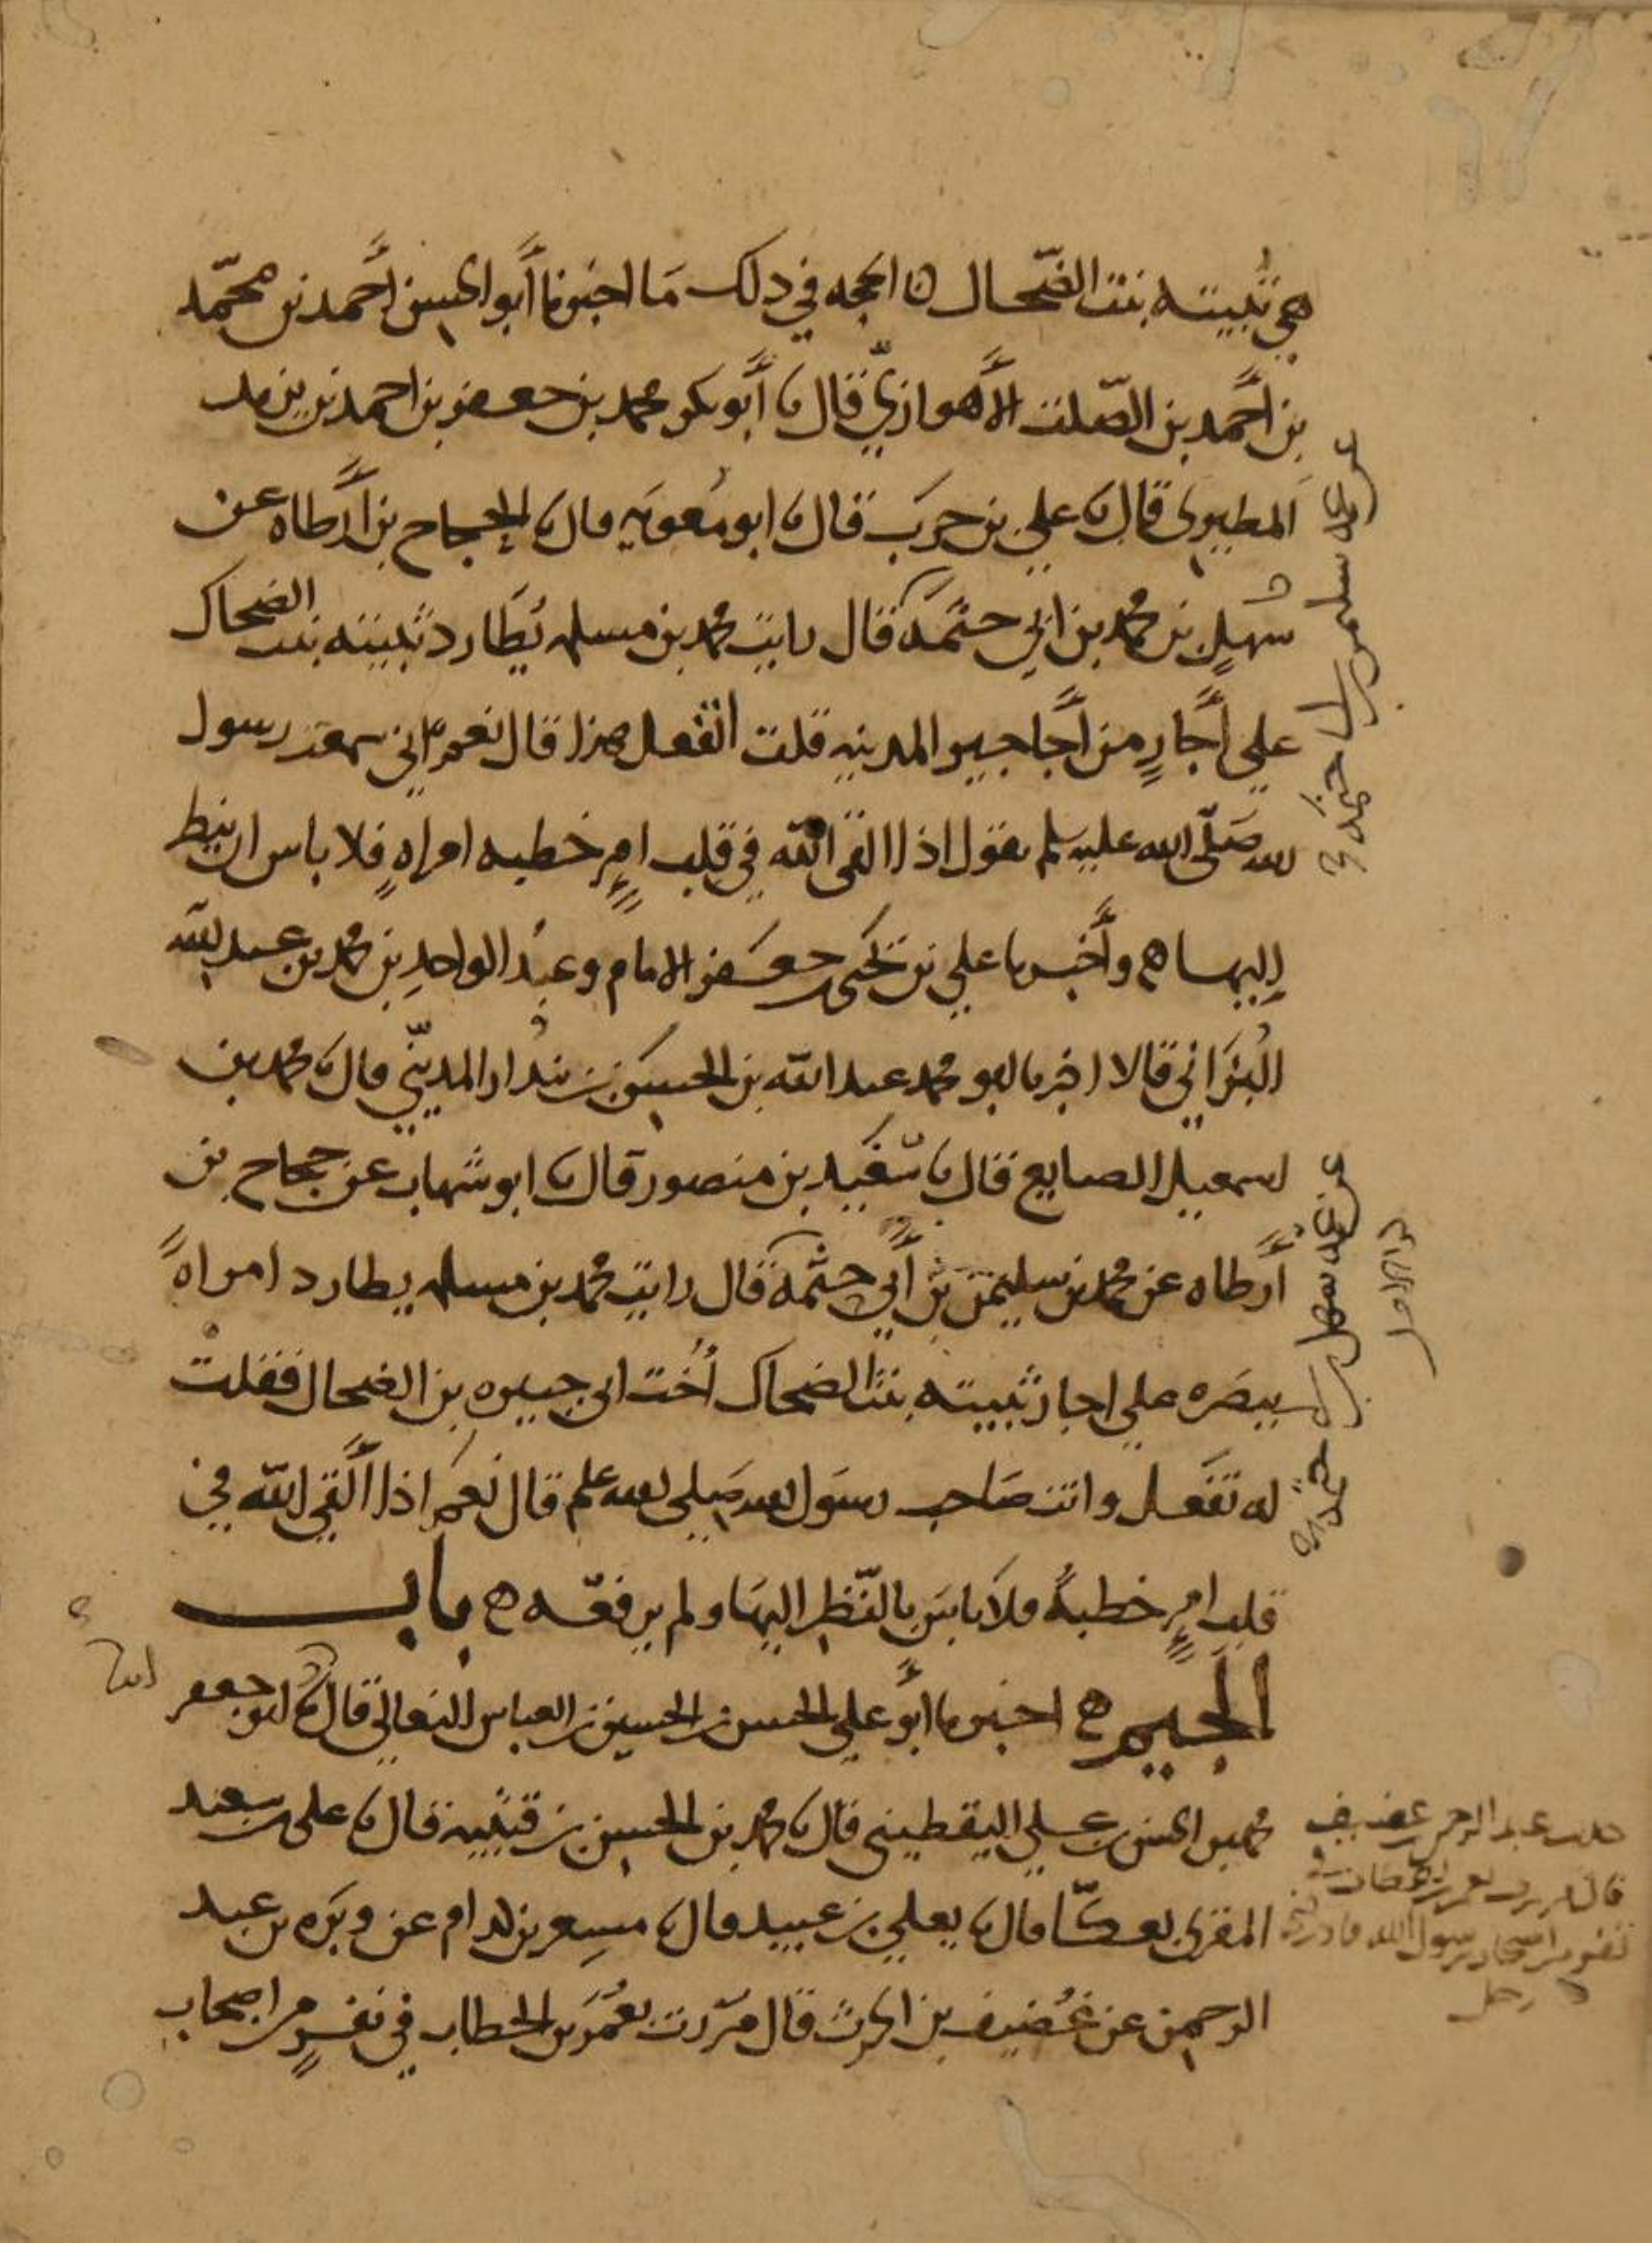 هي ثبيته بنت الضحاك الحجه في ذلك ما اخبرنا أبو الحسن أحمد بن محمد
بن أحمد بن الصلت الأهوازي قال نا أبو بكر محمد بن جعفر بن احمد بن يزيد
المطيري قال نا علي بن حرب قال نا ابو معويه قال نا الحجاج بن أرطاه عن
سهل بن محمد بن ابي حثمه قال رايت محمد بن مسلمه يطارد ثبيته بنت الضحاك
علي أجار من أجاجير المدينه قلت اتفعل هذا قال نعم اني سمعت رسول
الله صلى الله عليه وسلم يقول اذا القى الله في قلب امرٍ خطبه امراه فلا باس ان ينظر
إليها ه وأخبرنا علي بن يحيى بن جعفر الامام وعبد الواحد بن محمد بن عبد الله
البُزَاني قالا اخبرنا ابو محمد عبد الله بن الحسين بن بندار المديني قال نا محمد بن
اسمعيل الصايغ قال نا سعيد بن منصور قال نا ابو شهاب عن حجاج بن
أرطاه عن محمد بن سليمن بن أبي حثمه قال رايت محمد بن مسلمه يطارد امراهً
ببصره علي اجار ثبيته بنت الضحاك أخت ابي جبيره بن الضحاك فقلت
له تفعل وانت صاحب رسول الله صلي الله عليه وسلم قال نعم اذا ألقي الله في
قلب امرٍ خطبةً فلا باس بالنظر اليها ولم يرفعه ه باب
الجيم ه اخبرنا أبو علي الحسن بن الحسين بن العباس النعالي قال نا ابو جعفر
محمد بن الحسن بن علي اليقطيني قال نا محمد بن الحسن بن قتيبه قال نا علي بن سعيد
المقري بعكّا قال نا يعلي بن عبيد قال نا مسعر بن كدام عن وبره بن عبد
الرحمن عن غُضيف بن الحرث قال مررت بعُمَر بن الخطاب في نفرٍ من اصحاب